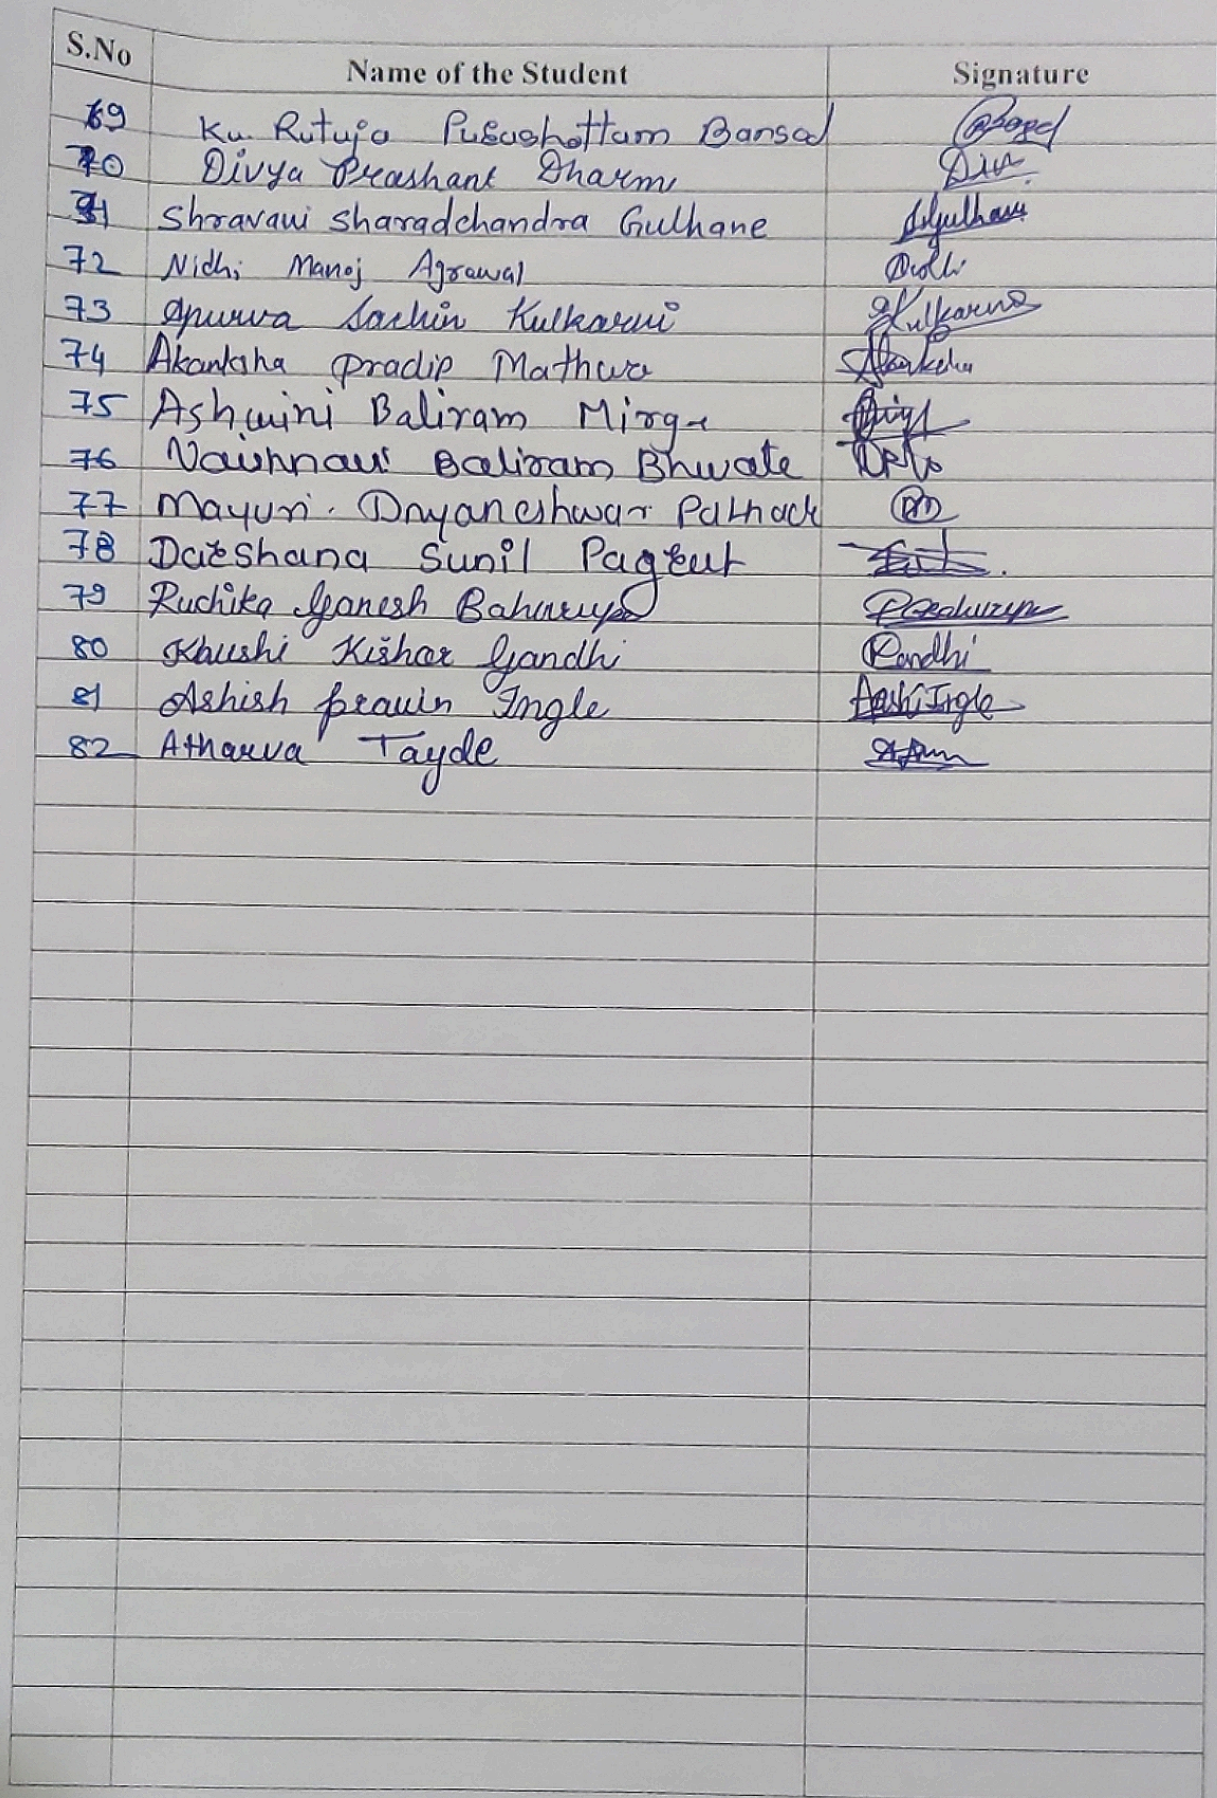 S.No Name of the Student Signature
69 Ku. Rutuja Purushottam Bansod
70 Divya Prashant Dharm Div
71 Shravani Sharadchandra Gulhane Gulhane
72 Nidhi Manoj Agrawal Nidhi
73 Apurva Sachin Kulkarni Kulkarni
74 Akanksha Pradip Mathur Akanksha
75 Ashwini Baliram Mirge
76 Vaishnavi Baliram Bhwate
77 Mayuri. Dnyaneshwar Pathade
78 Darshana Sunil Pagrut
79 Ruchika Ganesh Bahurupe
80 Khushi Kishor Gandhi Gandhi
81 Ashish Pravin Ingle Ashi Ingle
82 Atharva Tayde